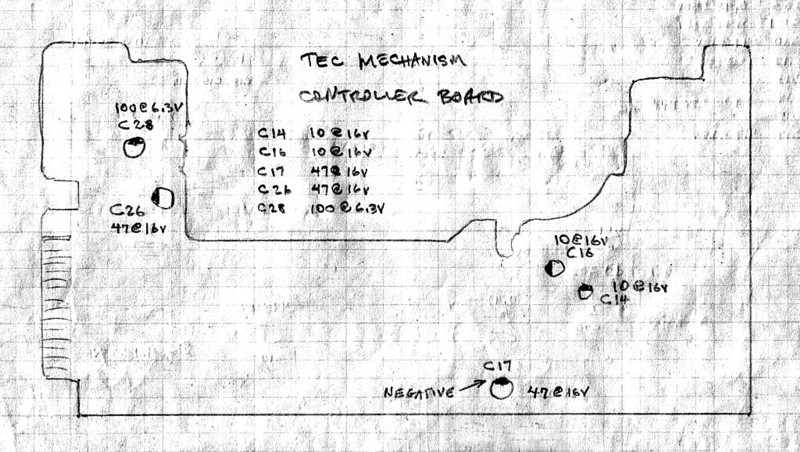 TEC MECHANISM
CONTROLLER BOARD
C14 10@16V
C16 10@16V
C17 47@16V
C26 47@16V
C28 100@6.3V
100@6.3V
C28
C26
47@16V
10@16V
C16
10@16V
C14
C17
NEGATIVE
47@16V